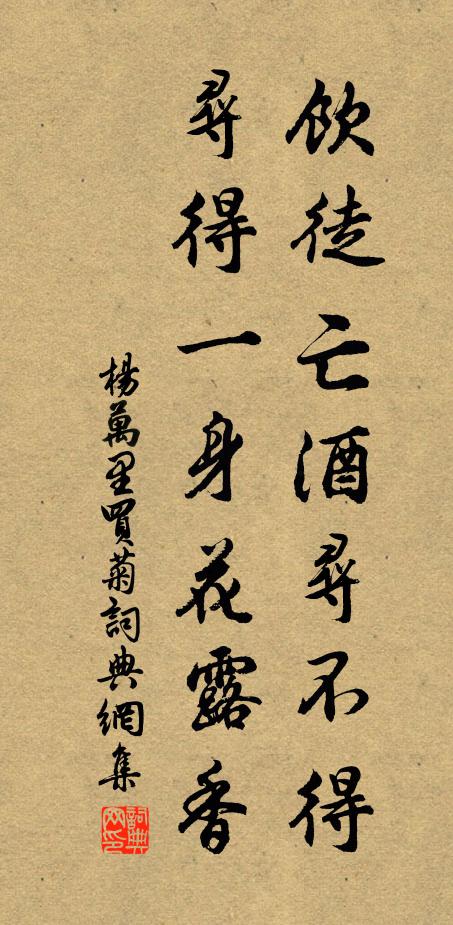 飲徒亡酒尋不得
尋得一身花露香
楊萬里買菊詞典網集
詞典網印